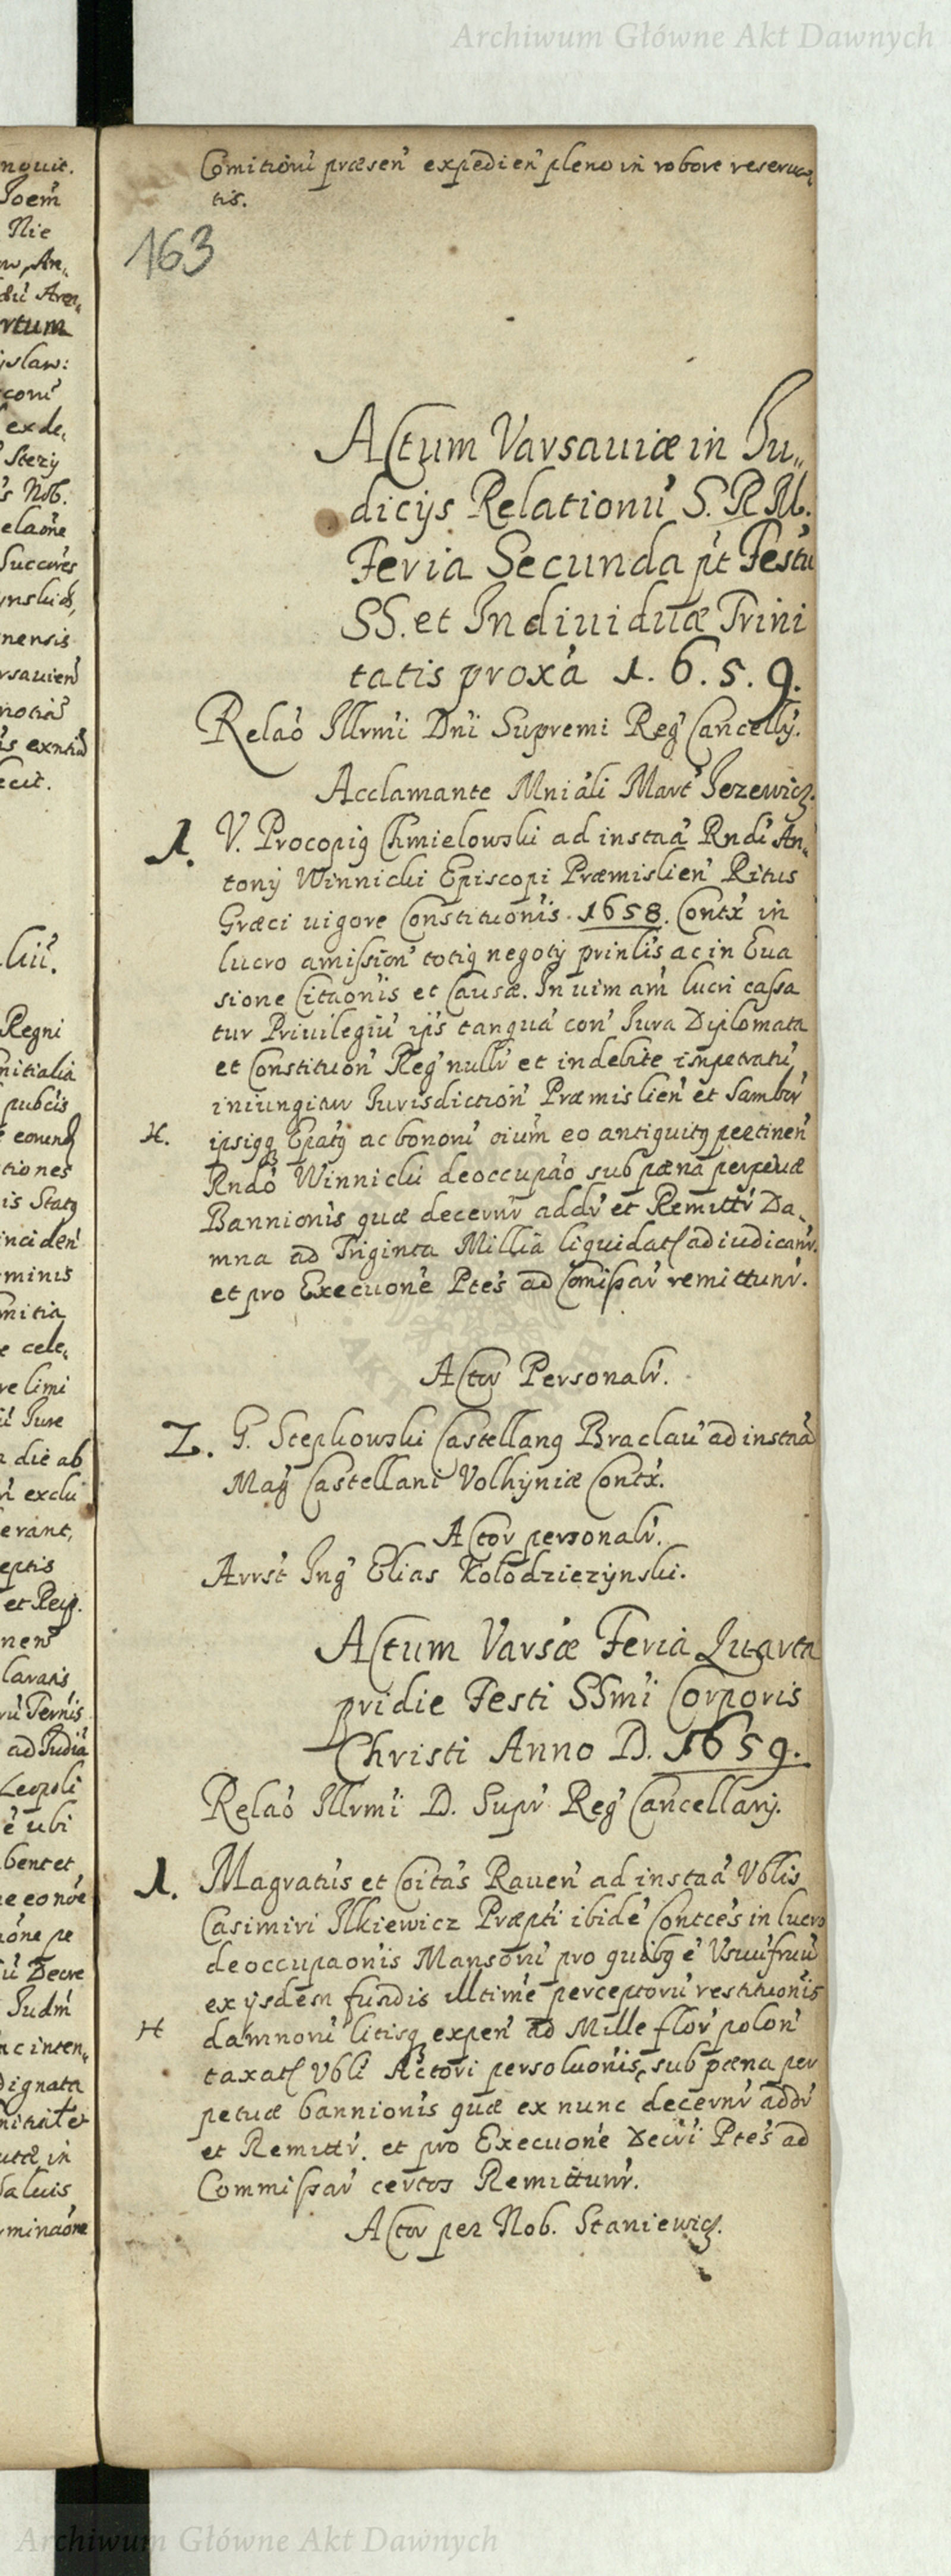 Archiwum Główne Akt Dawnych
nquit.
Nie
rtum
conū
exde,
s Nob.
elaōne
Succēs
nensis
Regni
pubcis
tiones
is Statq
eminis
mitia
e cele,
Jure
n die ab
exclu
erant,
eptis
ad Judia
Leopoli
ē ubi
bent et
Decre
Judm
nc inten,
dignata
Saluis
minaōne
Comitiorū præsen̄ expedien̄ pleno in robore reserua
tis.
163
Actum Varsauiæ in Ju,,
dicijs Relationū S. R. M.
Feria Secunda p̄t Festū
SS. et Indiuiduæ Trini
tatis proxā 1. 6. 5. 9.
Relaō Illrmi Dn̄i Supremi Reg̍ Cancellȳ.
Acclamante Mniāli Mart̍ Jezewicz.
1. V. Procopiq Chmielowski ad instaā Rndi An,
tonij Winnicki Episcopi Præmislien̍ Ritus
Græci uigore Constituonis 1658. Contx̍ in
lucro amission̍ totiq negotȳ prinlis ac in Eua
sione Citaōnis et Causæ. In uim am̄ lucri cassa
tur Priuilegiū ip̄s tanquā con̍ Jura Diplomata
et Constituōn̍ Reg̍ nullr̍ et indebite impetratū
iniungitur Jurisdiction̍ Præmislien̍ et Sambor̍
H. ipsiqq Epatq ac bonorū oiūm eo antiquitq pertinen̍
Rndo Winnicki deoccupāo sub pænā perpetuæ
Bannionis quæ decernr̍ addr̍ et Remittr̍ Da,
mna ad Triginta Millia liquidat ad iudicanr̍.
et pro Execuone Ptes ad Comissar̍ remittunr̍.
Actor Personalr̍.
2. G. Stepkowski Castellanq Braclau̍ ad instaā
Mag̍ Castellani Volhyniæ Contx̍.
Actor personalr̍.
Arrst̍ Ing̍ Elias Kołodzieżynski.
Actum Varsiæ Feria Quarta
pridie Festi SSmi Corporis
Christi Anno D. 1659.
Relaō Illrmi D. Supr̍ Reg̍ Cancellarij.
1. Magratus et Coitas Rauen̍ ad instaā Vblis
Casimiri Ilkiewicz Præpti ibidē Contces in lucro
deoccupaonis Mansorū pro quibq ē Usuufruū
ex ijsdem fundis illtime perceptorū restituōnis
H damnorū litisq expen̍ ad Mille flor̍ polon̍
taxat Vbli Actori persoluonis, sub pæna per
petuæ bannionis quæ ex nunc decernr̍ addr̍
et Remittr̍. et pro Execuone Decri Ptes ad
Commissar̍ certos Remittunr̍.
Actor per Nob. Staniewicz.
Archiwum Główne Akt Dawnych